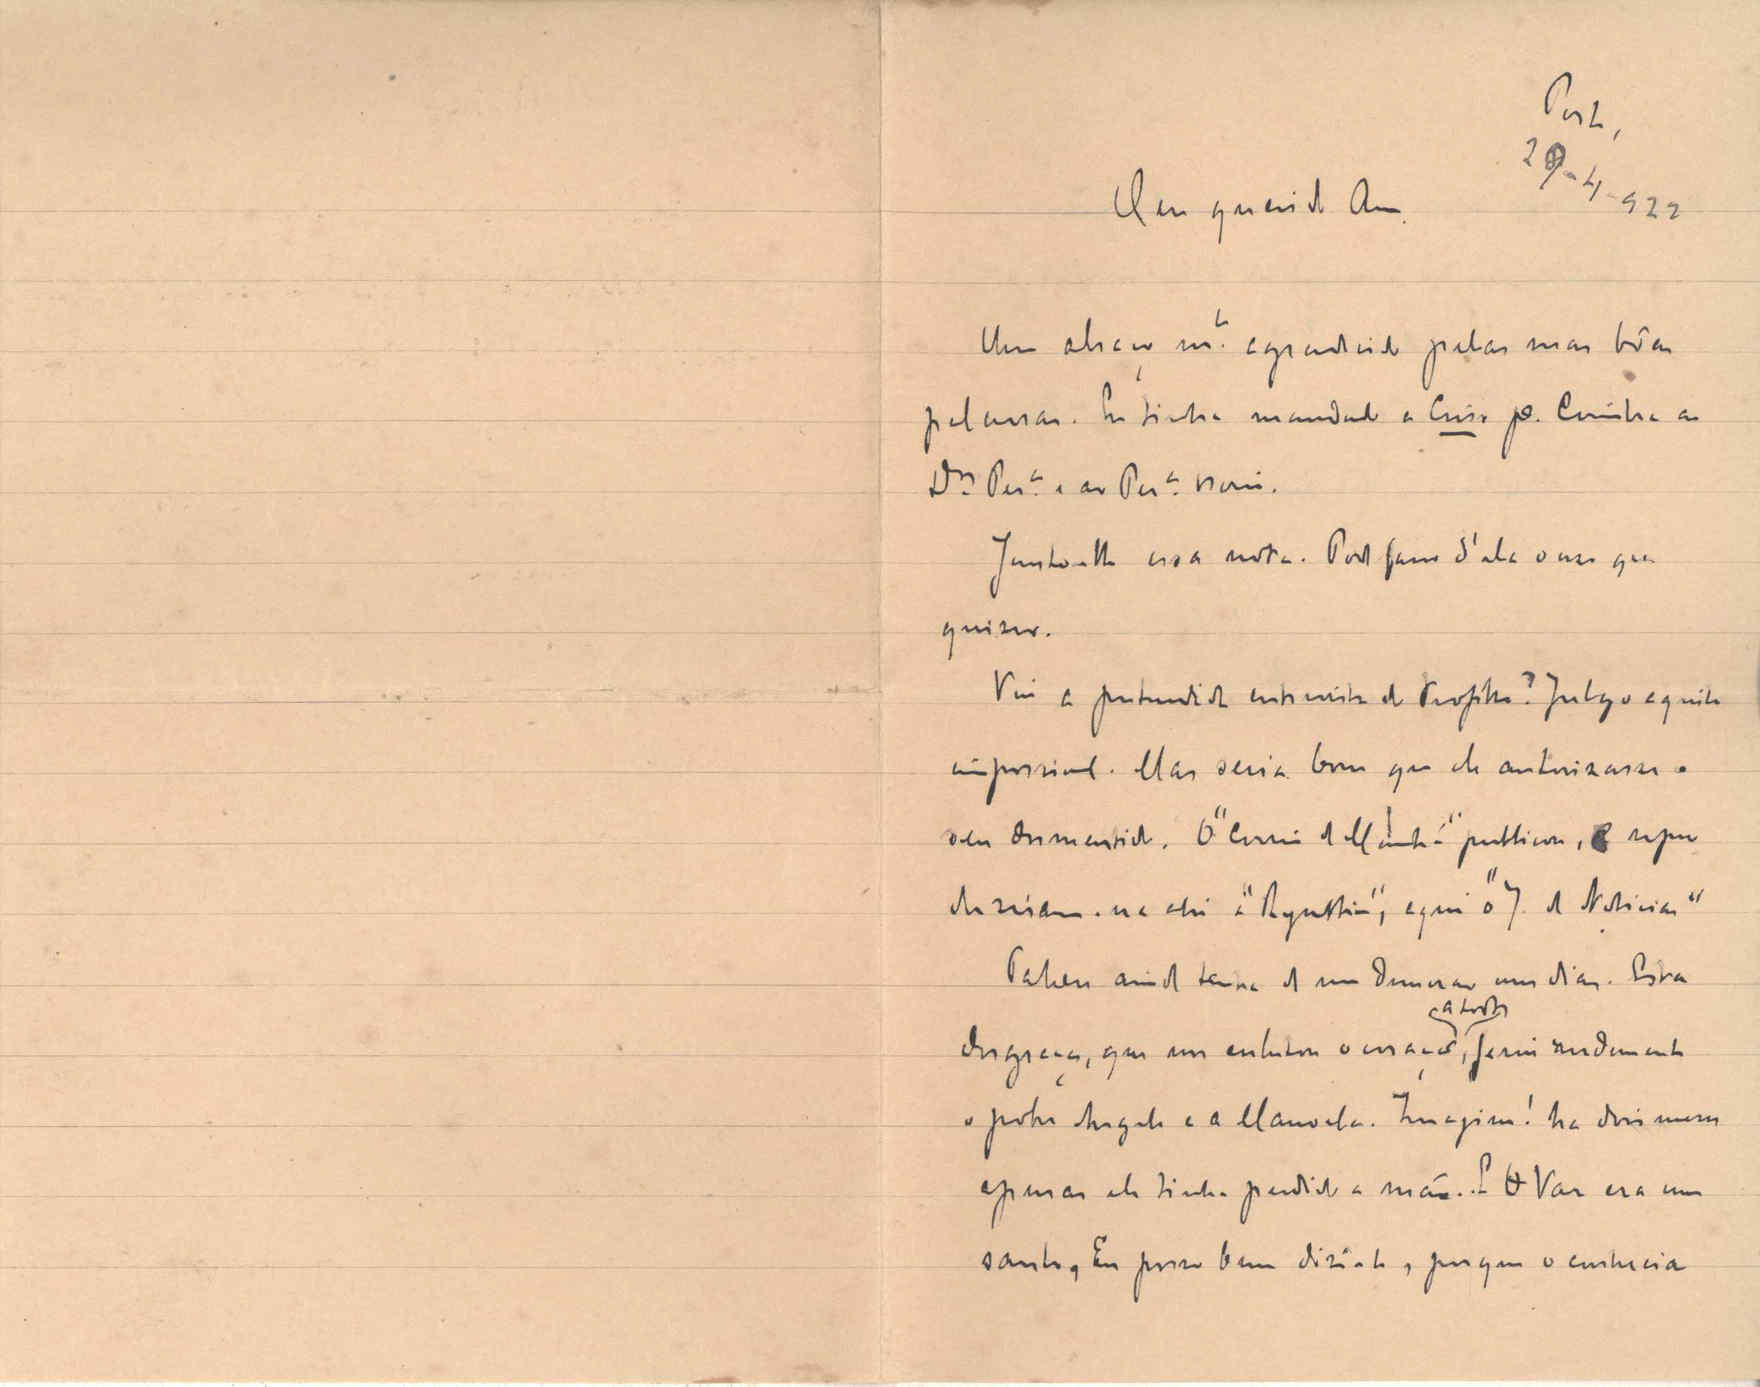 Porto,
29-4-922
Meu querido Am.
Um abraço m.to agradecido pelas suas bôas
palavras. Eu tinha mandado a Crise p.a Coimbra ao
Dr. Per.a e ao Per.a
Junto-lhe essa nota. Pode fazer d'ela o uso que
quizer.
Viu a pretendida entrevista do Profeta? Julgo aquilo
impossivel. Mas seria bom que ele autorizasse o
seu desmentido. O "Correio da Manhã" publicou, e
ahi a "Republica", aqui o "J. de Noticias"
Talvez ainda tenha de me demorar uns dias. Esta
desgraça, que nos enlutou o coração, a todos, feriu rudemente
o pobre Angelo e a Manoela. Imagine! ha dois meses
apenas ele tinha perdido a mãe. E o Vaz era um
santo, Eu posso bem dizê-lo, porque o conhecia